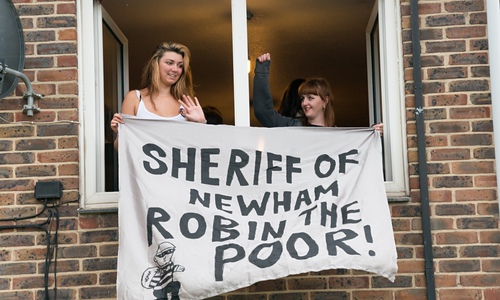 SHERIFF OF
NEWHAM
ROBIN THE
POOR!